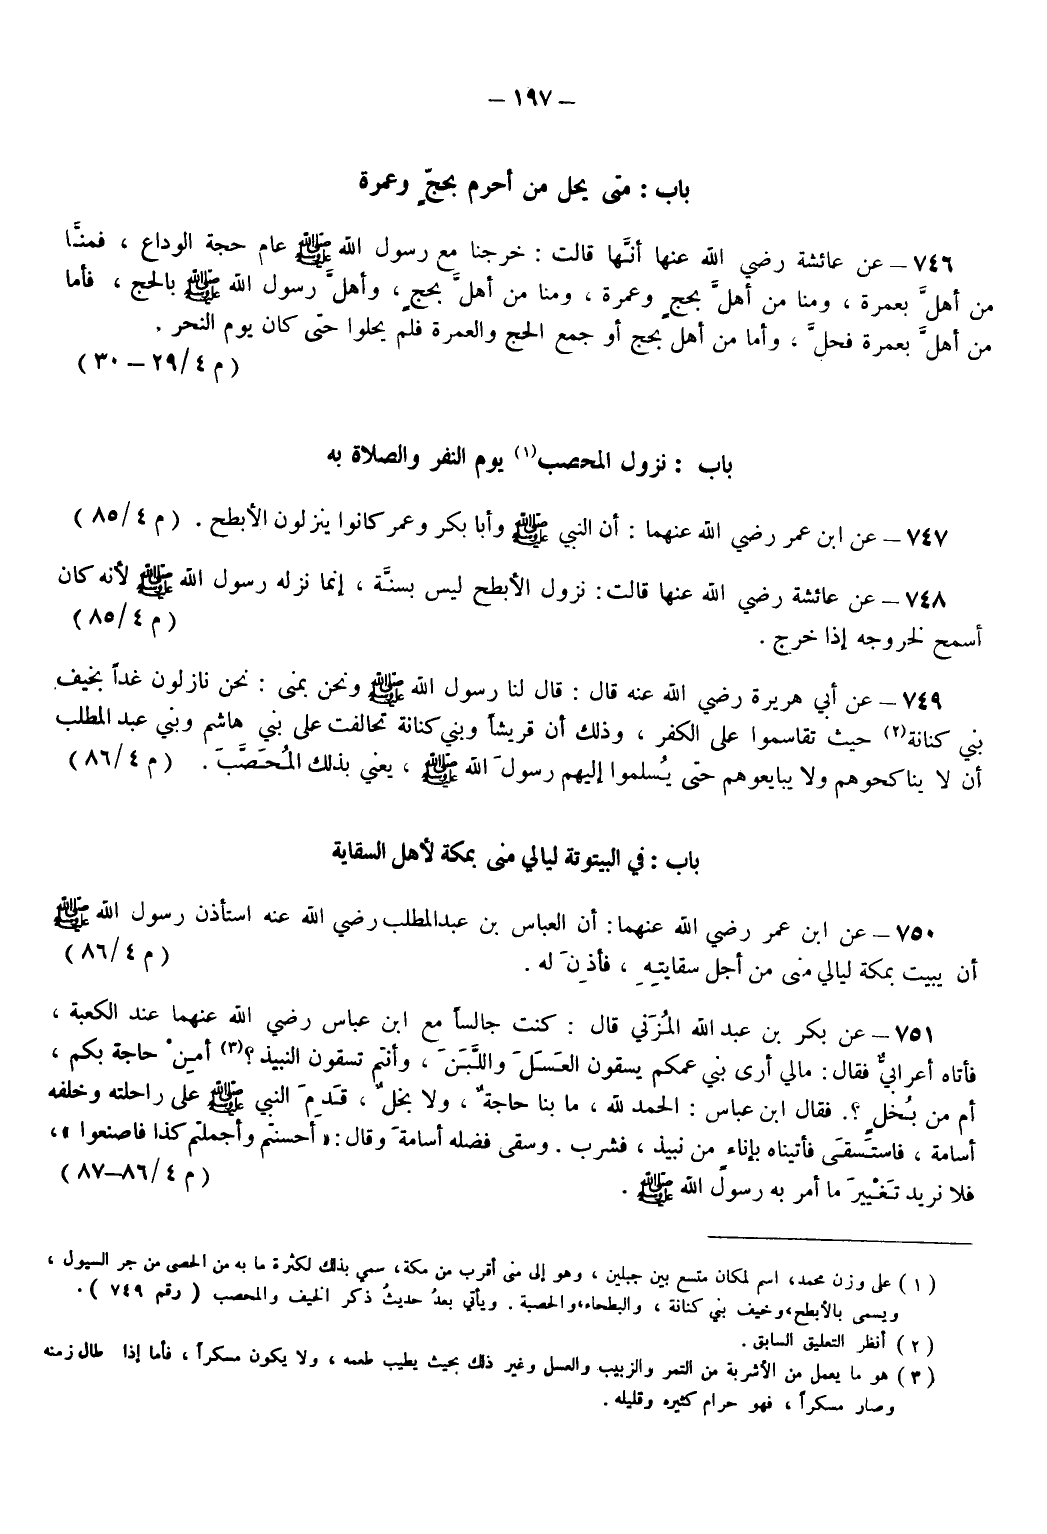 – ١٩٧ –
باب : متى يحل من أحرم بحجٍّ وعمرة
٧٤٦ – عن عائشة رضي الله عنها أنَّها قالت : خرجنا مع رسول الله ﷺ عام حجة الوداع ، فمنَّا
من أهلَّ بعمرة ، ومنا من أهلَّ بحجٍ وعمرة ، ومنا من أهلَّ بحجٍ ، وأهلَّ رسول الله ﷺ بالحج ، فأما
من أهلَّ بعمرة فحلَّ ، وأما من أهل بحج أو جمع الحج والعمرة فلم يحلوا حتى كان يوم النحر .
( م ٤/٢٩ – ٣٠ )
باب : نزول المحصب(١) يوم النفر والصلاة به
٧٤٧ – عن ابن عمر رضي الله عنهما : أن النبي ﷺ وأبا بكر وعمر كانوا ينزلون الأبطح . ( م ٤/٨٥ )
٧٤٨ – عن عائشة رضي الله عنها قالت : نزول الأبطح ليس بسنَّة ، إنما نزله رسول الله ﷺ لأنه كان
أسمح لخروجه إذا خرج . ( م ٤/٨٥ )
٧٤٩ – عن أبي هريرة رضي الله عنه قال : قال لنا رسول الله ﷺ ونحن بمنى : نحن نازلون غداً بخيف
بني كنانة(٢) حيث تقاسموا على الكفر ، وذلك أن قريشاً وبني كنانة تحالفت على بني هاشم وبني عبد المطلب
أن لا يناكحوهم ولا يبايعوهم حتى يُسلموا إليهم رسولَ الله ﷺ ، يعني بذلك المُحَصَّبَ . ( م ٤/٨٦ )
باب : في البيتوتة ليالي منى بمكة لأهل السقاية
٧٥٠ – عن ابن عمر رضي الله عنهما : أن العباس بن عبدالمطلب رضي الله عنه استأذن رسول الله ﷺ
أن يبيت بمكة ليالي منى من أجل سقايتِهِ ، فأذِنَ له . ( م ٤/٨٦ )
٧٥١ – عن بكر بن عبد الله المُزَني قال : كنت جالساً مع ابن عباس رضي الله عنهما عند الكعبة ،
فأتاه أعرابيٌّ فقال : مالي أرى بني عمكم يسقون العَسَلَ واللَّبَنَ ، وأنتم تسقون النبيذ ؟(٣) أمِنْ حاجة بكم ،
أم من بُخلٍ ؟. فقال ابن عباس : الحمد لله ، ما بنا حاجةٌ ، ولا بخلٌ ، قَدِمَ النبي ﷺ على راحلته وخلفه
أسامة ، فاستَسقَى فأتيناه بإناءٍ من نبيذ ، فشرب . وسقى فضله أسامةَ وقال : « أحسنتم وأجملتم كذا فاصنعوا » ،
فلا نريد تَغْييرَ ما أمر به رسول الله ﷺ . ( م ٤/٨٦–٨٧ )
( ١ ) على وزن محمد ، اسم لمكان متسع بين جبلين ، وهو إلى منى أقرب من مكة ، سمي بذلك لكثرة ما به من الحصى من جر السيول ،
ويسمى بالأبطح ، وخيف بني كنانة ، والبطحاء ، والحصبة . ويأتي بعدُ حديثُ ذكر الخيف والمحصب ( رقم ٧٤٩ ) .
( ٢ ) أنظر التعليق السابق .
( ٣ ) هو ما يعمل من الأشربة من التمر والزبيب والعسل وغير ذلك بحيث يطيب طعمه ، ولا يكون مسكراً ، فأما إذا طال زمنه
وصار مسكراً ، فهو حرام كثيره وقليله .